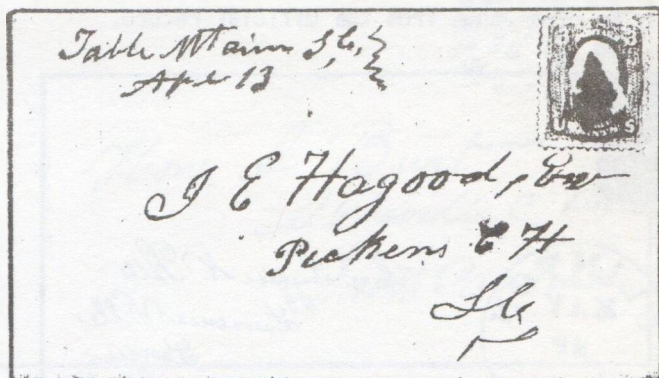 Table Mtain S.C,
Apr 13
J E Hagood,
Pickens C H
S C